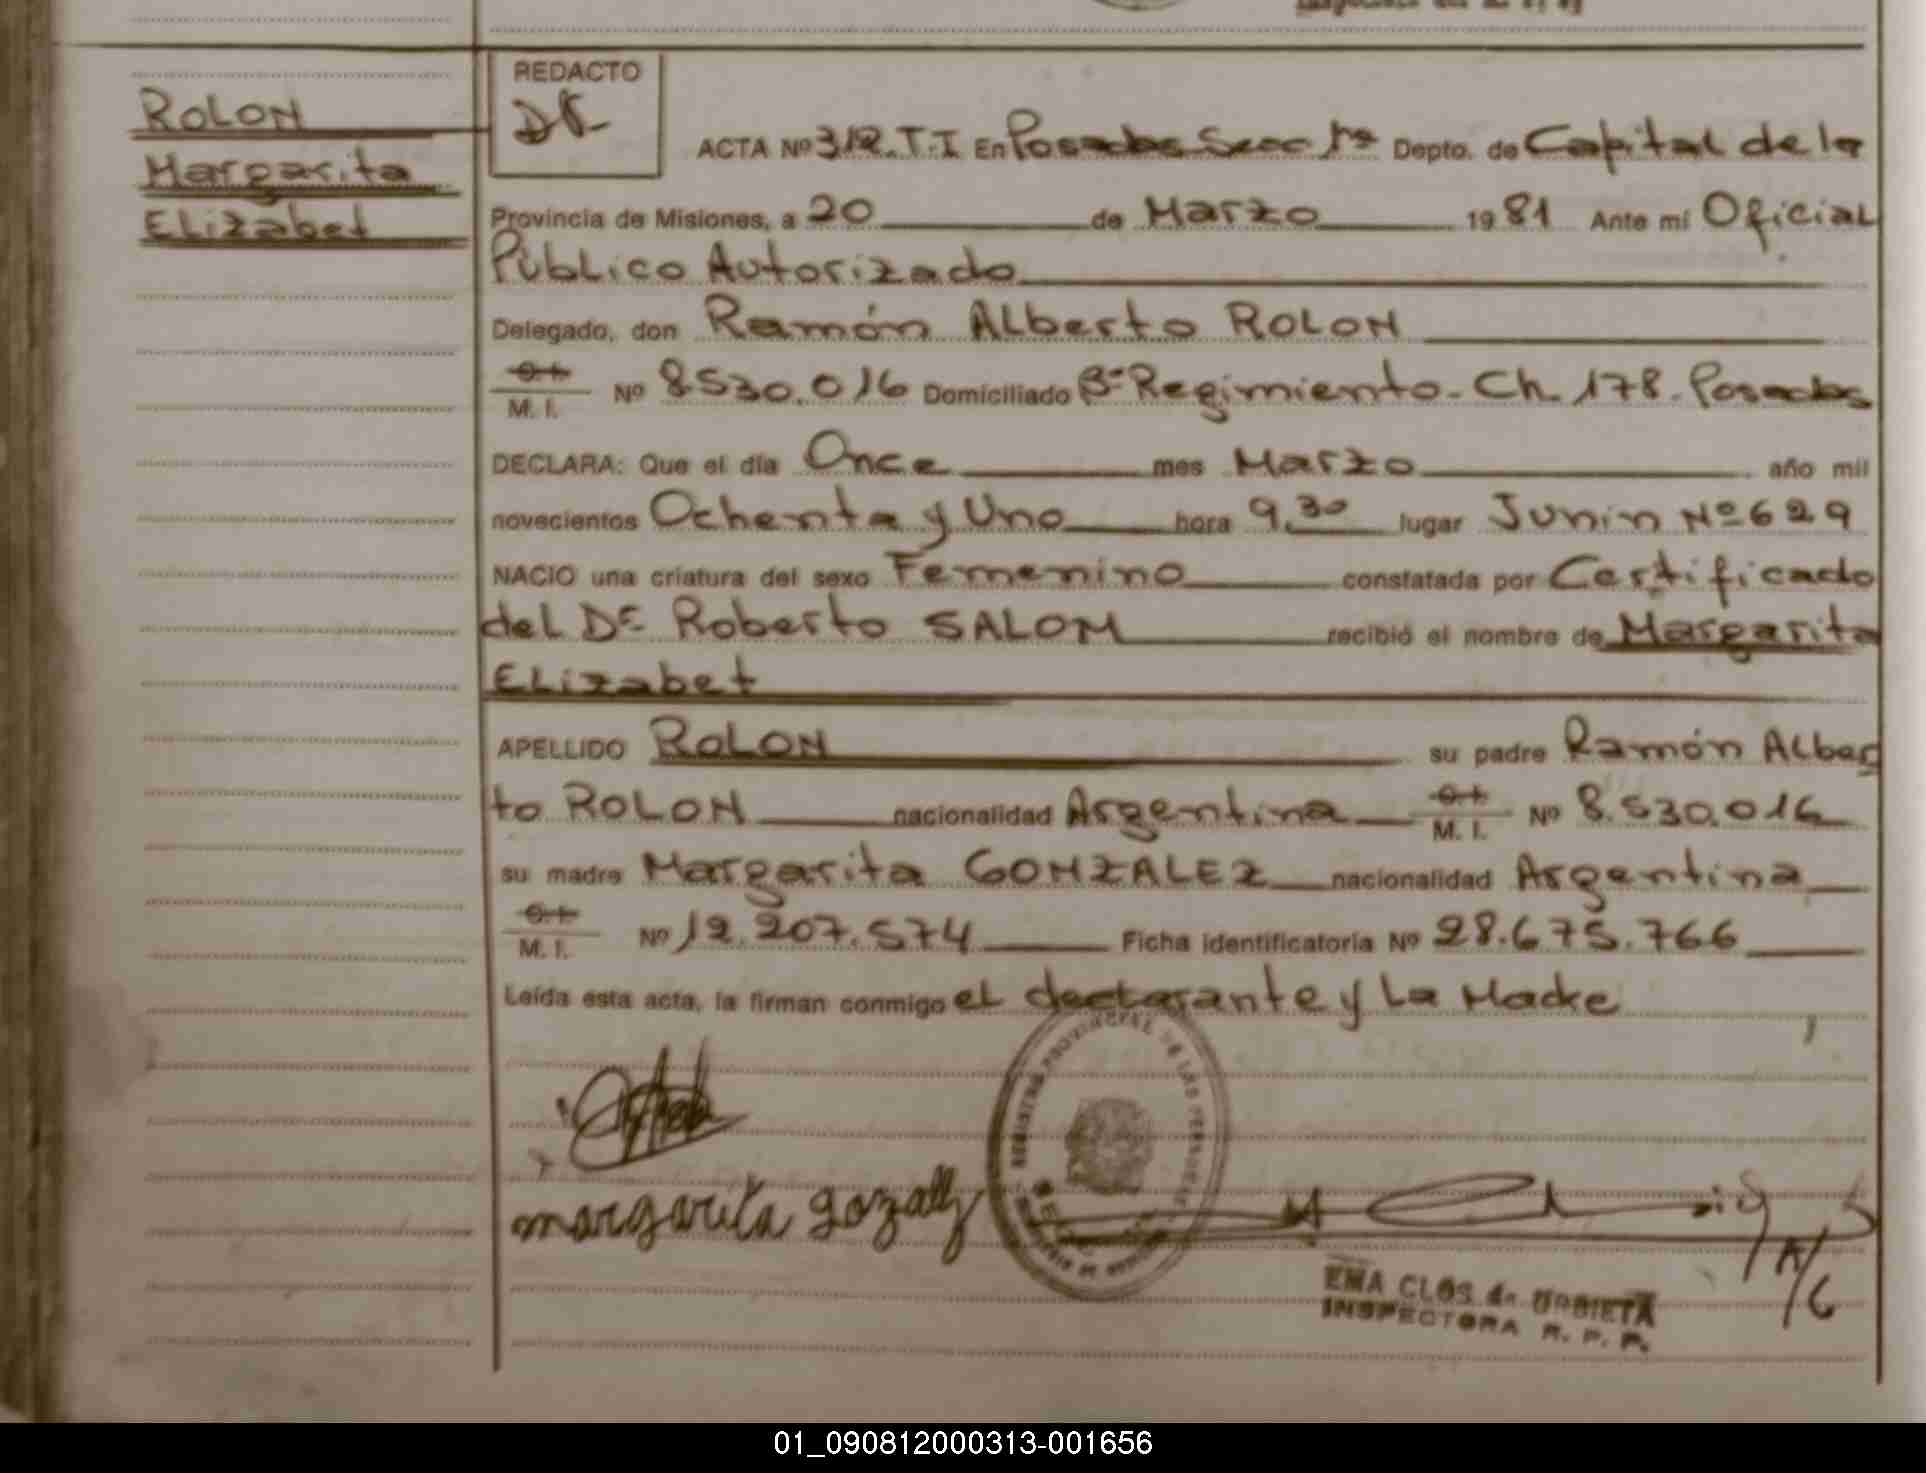 ROLON
Margarita
Elizabet
REDACTO
ACTA Nº 312.T.I En Posadas Secc 1ª Depto. de Capital de la
Provincia de Misiones, a 20 de Marzo 1981 Ante mí Oficial
Público Autorizado
Delegado, don Ramón Alberto ROLON
M. I. Nº 8.530.016 Domiciliado Bº Regimiento - Ch. 178. Posadas
DECLARA: Que el día Once mes Marzo año mil
novecientos Ochenta y Uno hora 9,30 lugar Junin Nº 629
NACIO una criatura del sexo Femenino constatada por Certificado
del Dr Roberto SALOM recibió el nombre de Margarita
Elizabet
APELLIDO ROLON su padre Ramón Alber
to ROLON nacionalidad Argentina M. I. Nº 8.530.016
su madre Margarita GONZALEZ nacionalidad Argentina
M. I. Nº 12.207.574 Ficha identificatoria Nº 28.675.766
Leída esta acta, la firman conmigo el declarante y La Madre
REGISTRO PROVINCIAL DE LAS PERSONAS
margarita gozalz
EMA CLOS de URBIETA
INSPECTORA R. P. P.
01_090812000313-001656